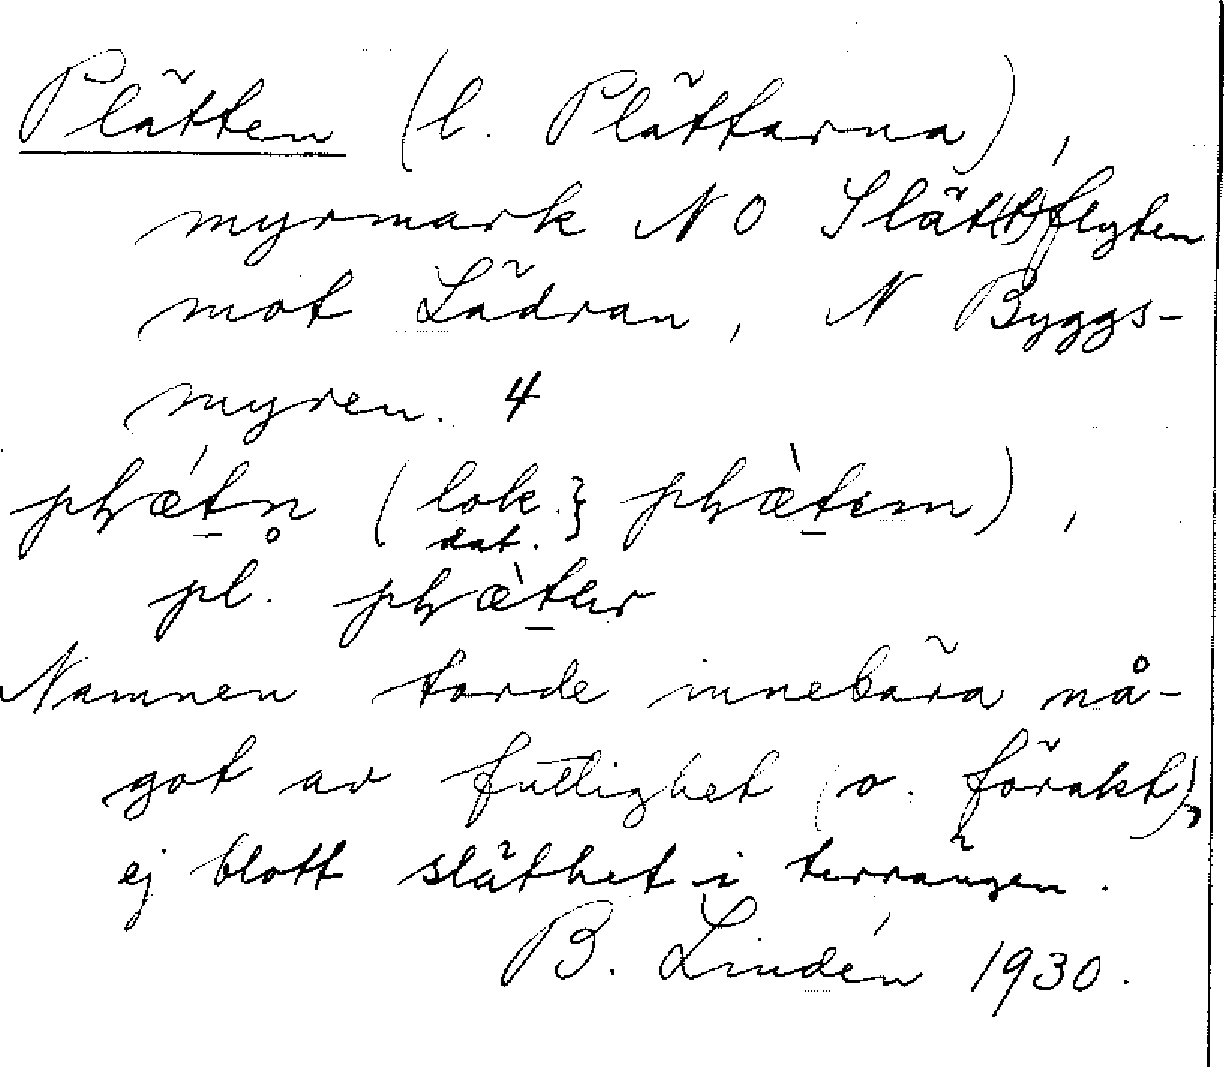 Plätten (l. Plättarna),
myrmark NO Slätt(b)flyten
mot Lädran, N Byggs-
myren. 4
pl. 
Namnen torde innebära nå-
got av futtighet (o. förakt),
ej blott släthet i terrängen.
B. Lindén 1930.